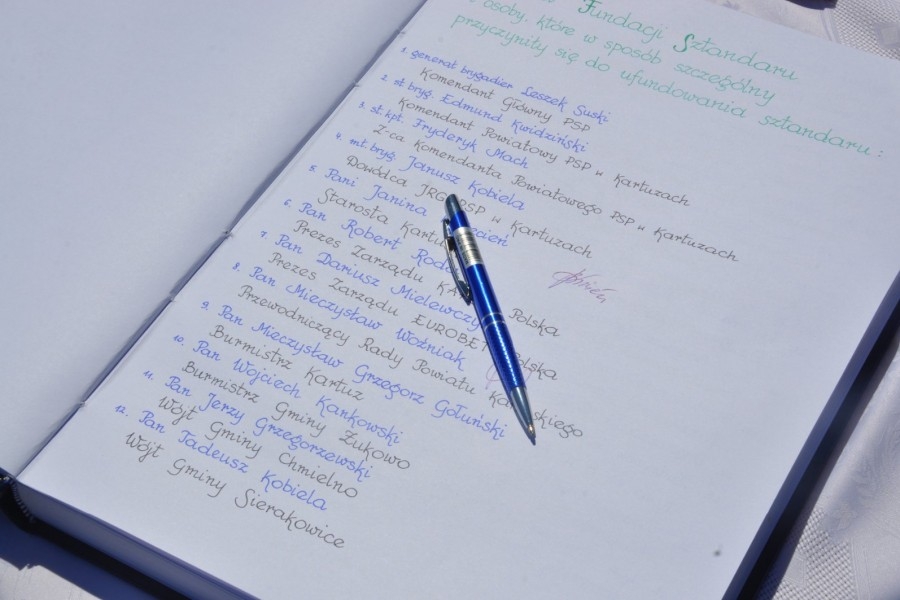 Fundacji Sztandaru
osoby, które w sposób szczególny
przyczyniły się do ufundowania sztandaru:
1. generał brygadier Leszek Suski
Komendant Główny PSP
2. st. bryg. Edmund Kwidziński
Komendant Powiatowy PSP w Kartuzach
3. st. kpt. Fryderyk Mach
Z-ca Komendanta Powiatowego PSP w Kartuzach
4. mł. bryg. Janusz Kobiela
Dowódca JRG PSP w Kartuzach
5. Pani Janina
Starosta
6. Pan Robert
Prezes Zarządu Polska
7. Pan Dariusz Mielewczy
Prezes Zarządu EUROBE
8. Pan Mieczysław Woźniak
Przewodniczący Rady Powiatu
9. Pan Mieczysław Grzegorz Gołuński
Burmistrz Kartuz
10. Pan Wojciech Kankowski
Burmistrz Gminy Żukowo
11. Pan Jerzy Grzegorzewski
Wójt Gminy Chmielno
12. Pan Tadeusz Kobiela
Wójt Gminy Sierakowice